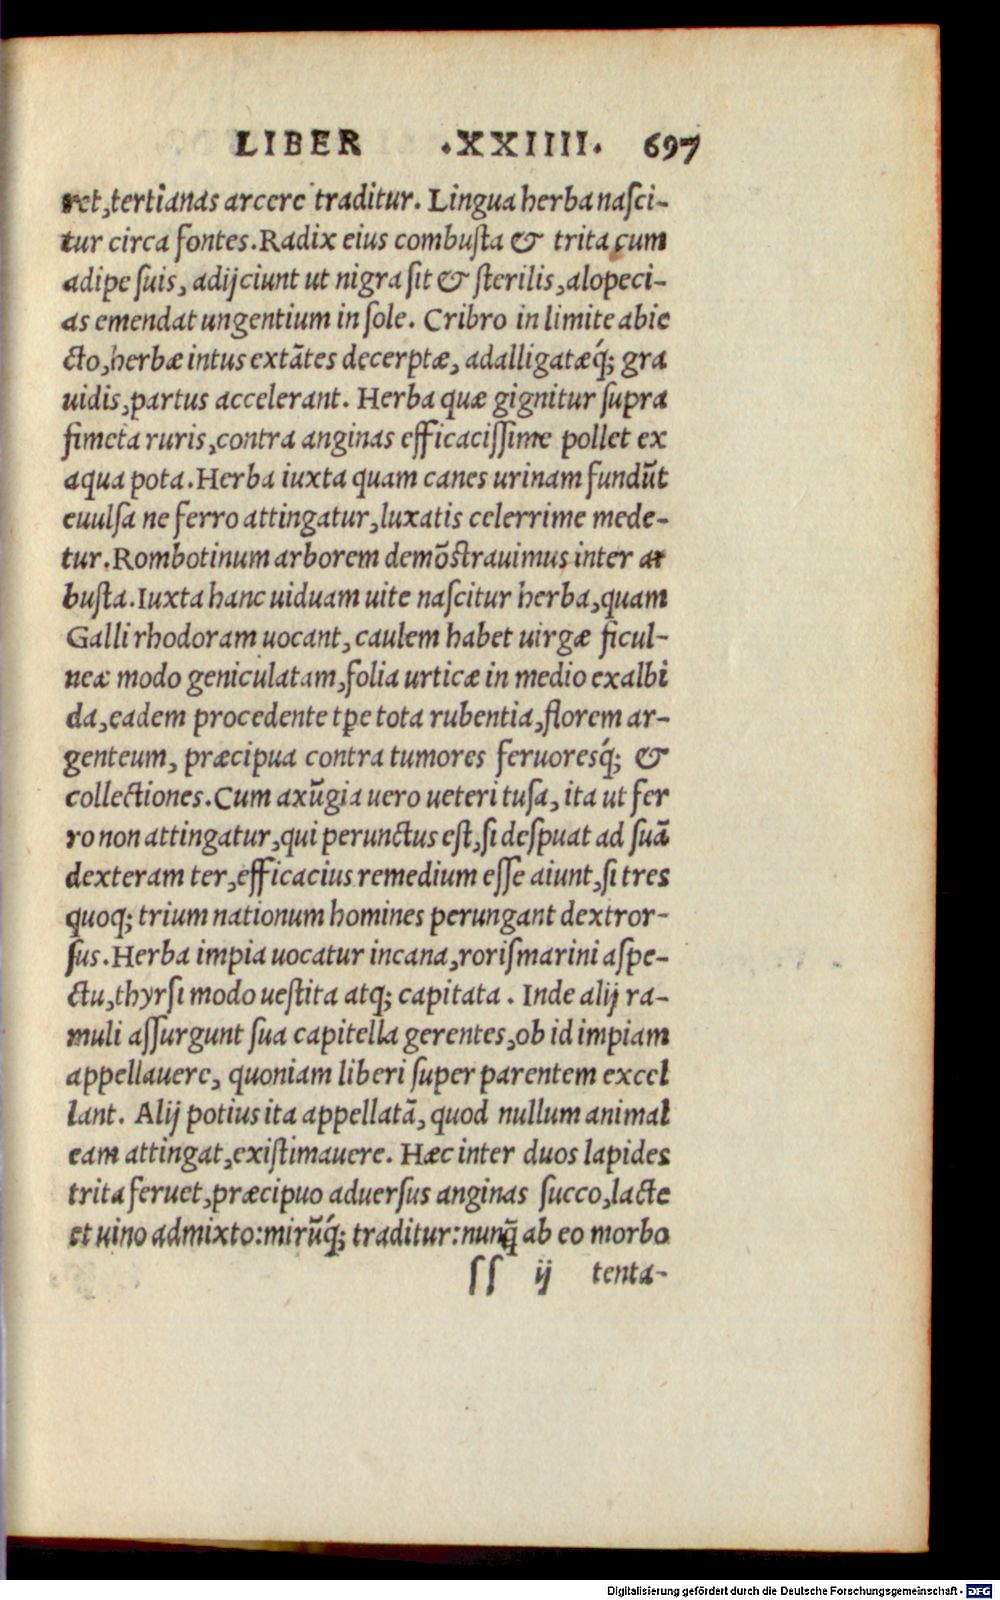 LIBER .XXIIII. 697
ret,tertianas arcere traditur. Lingua herba nasci-
tur circa fontes.Radix eius combusta & trita cum
adipe suis, adijciunt ut nigra sit & sterilis,alopeci-
as emendat ungentium in sole. Cribro in limite abie
cto,herbæ intus extātes decerptæ, adalligatæq́; gra
uidis,partus accelerant. Herba quæ gignitur supra
fimeta ruris,contra anginas efficacissime pollet ex
aqua pota.Herba iuxta quam canes urinam fundūt
euulsa ne ferro attingatur,luxatis celerrime mede-
tur.Rombotinum arborem demōstrauimus inter ar
busta.Iuxta hanc uiduam uite nascitur herba,quam
Galli rhodoram uocant,caulem habet uirgæ ficul-
neæ modo geniculatam,folia urticæ in medio exalbi
da,eadem procedente tp̄e tota rubentia,florem ar-
genteum, præcipua contra tumores feruoresq́; &
collectiones.Cum axūgia uero ueteri tusa, ita ut fer
ro non attingatur,qui perunctus est,si despuat ad suā
dexteram ter,efficacius remedium esse aiunt,si tres
quoq; trium nationum homines perungant dextror-
sus.Herba impia uocatur incana,rorismarini aspe-
ctu,thyrsi modo uestita atq; capitata. Inde alij ra-
muli assurgunt sua capitella gerentes,ob id impiam
appellauere, quoniam liberi super parentem excel
lant. Alij potius ita appellatā, quod nullum animal
eam attingat,existimauere. Hæc inter duos lapides
trita feruet,præcipuo aduersus anginas succo,lacte
et uino admixto:mirūq́; traditur:nunq̄ ab eo morbo
ſſ ij tenta-
Digitalisierung gefördert durch die Deutsche Forschungsgemeinschaft - DFG